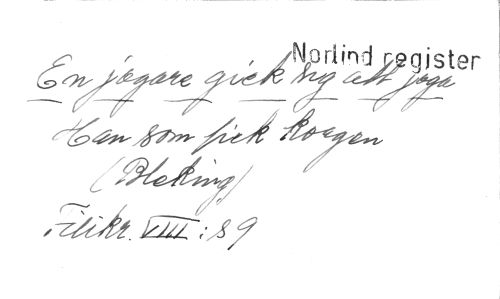 Norlind register
En jägare gick sig att jaga
Han som fick korgen
(Bleking)
Filikr. VIII: 89